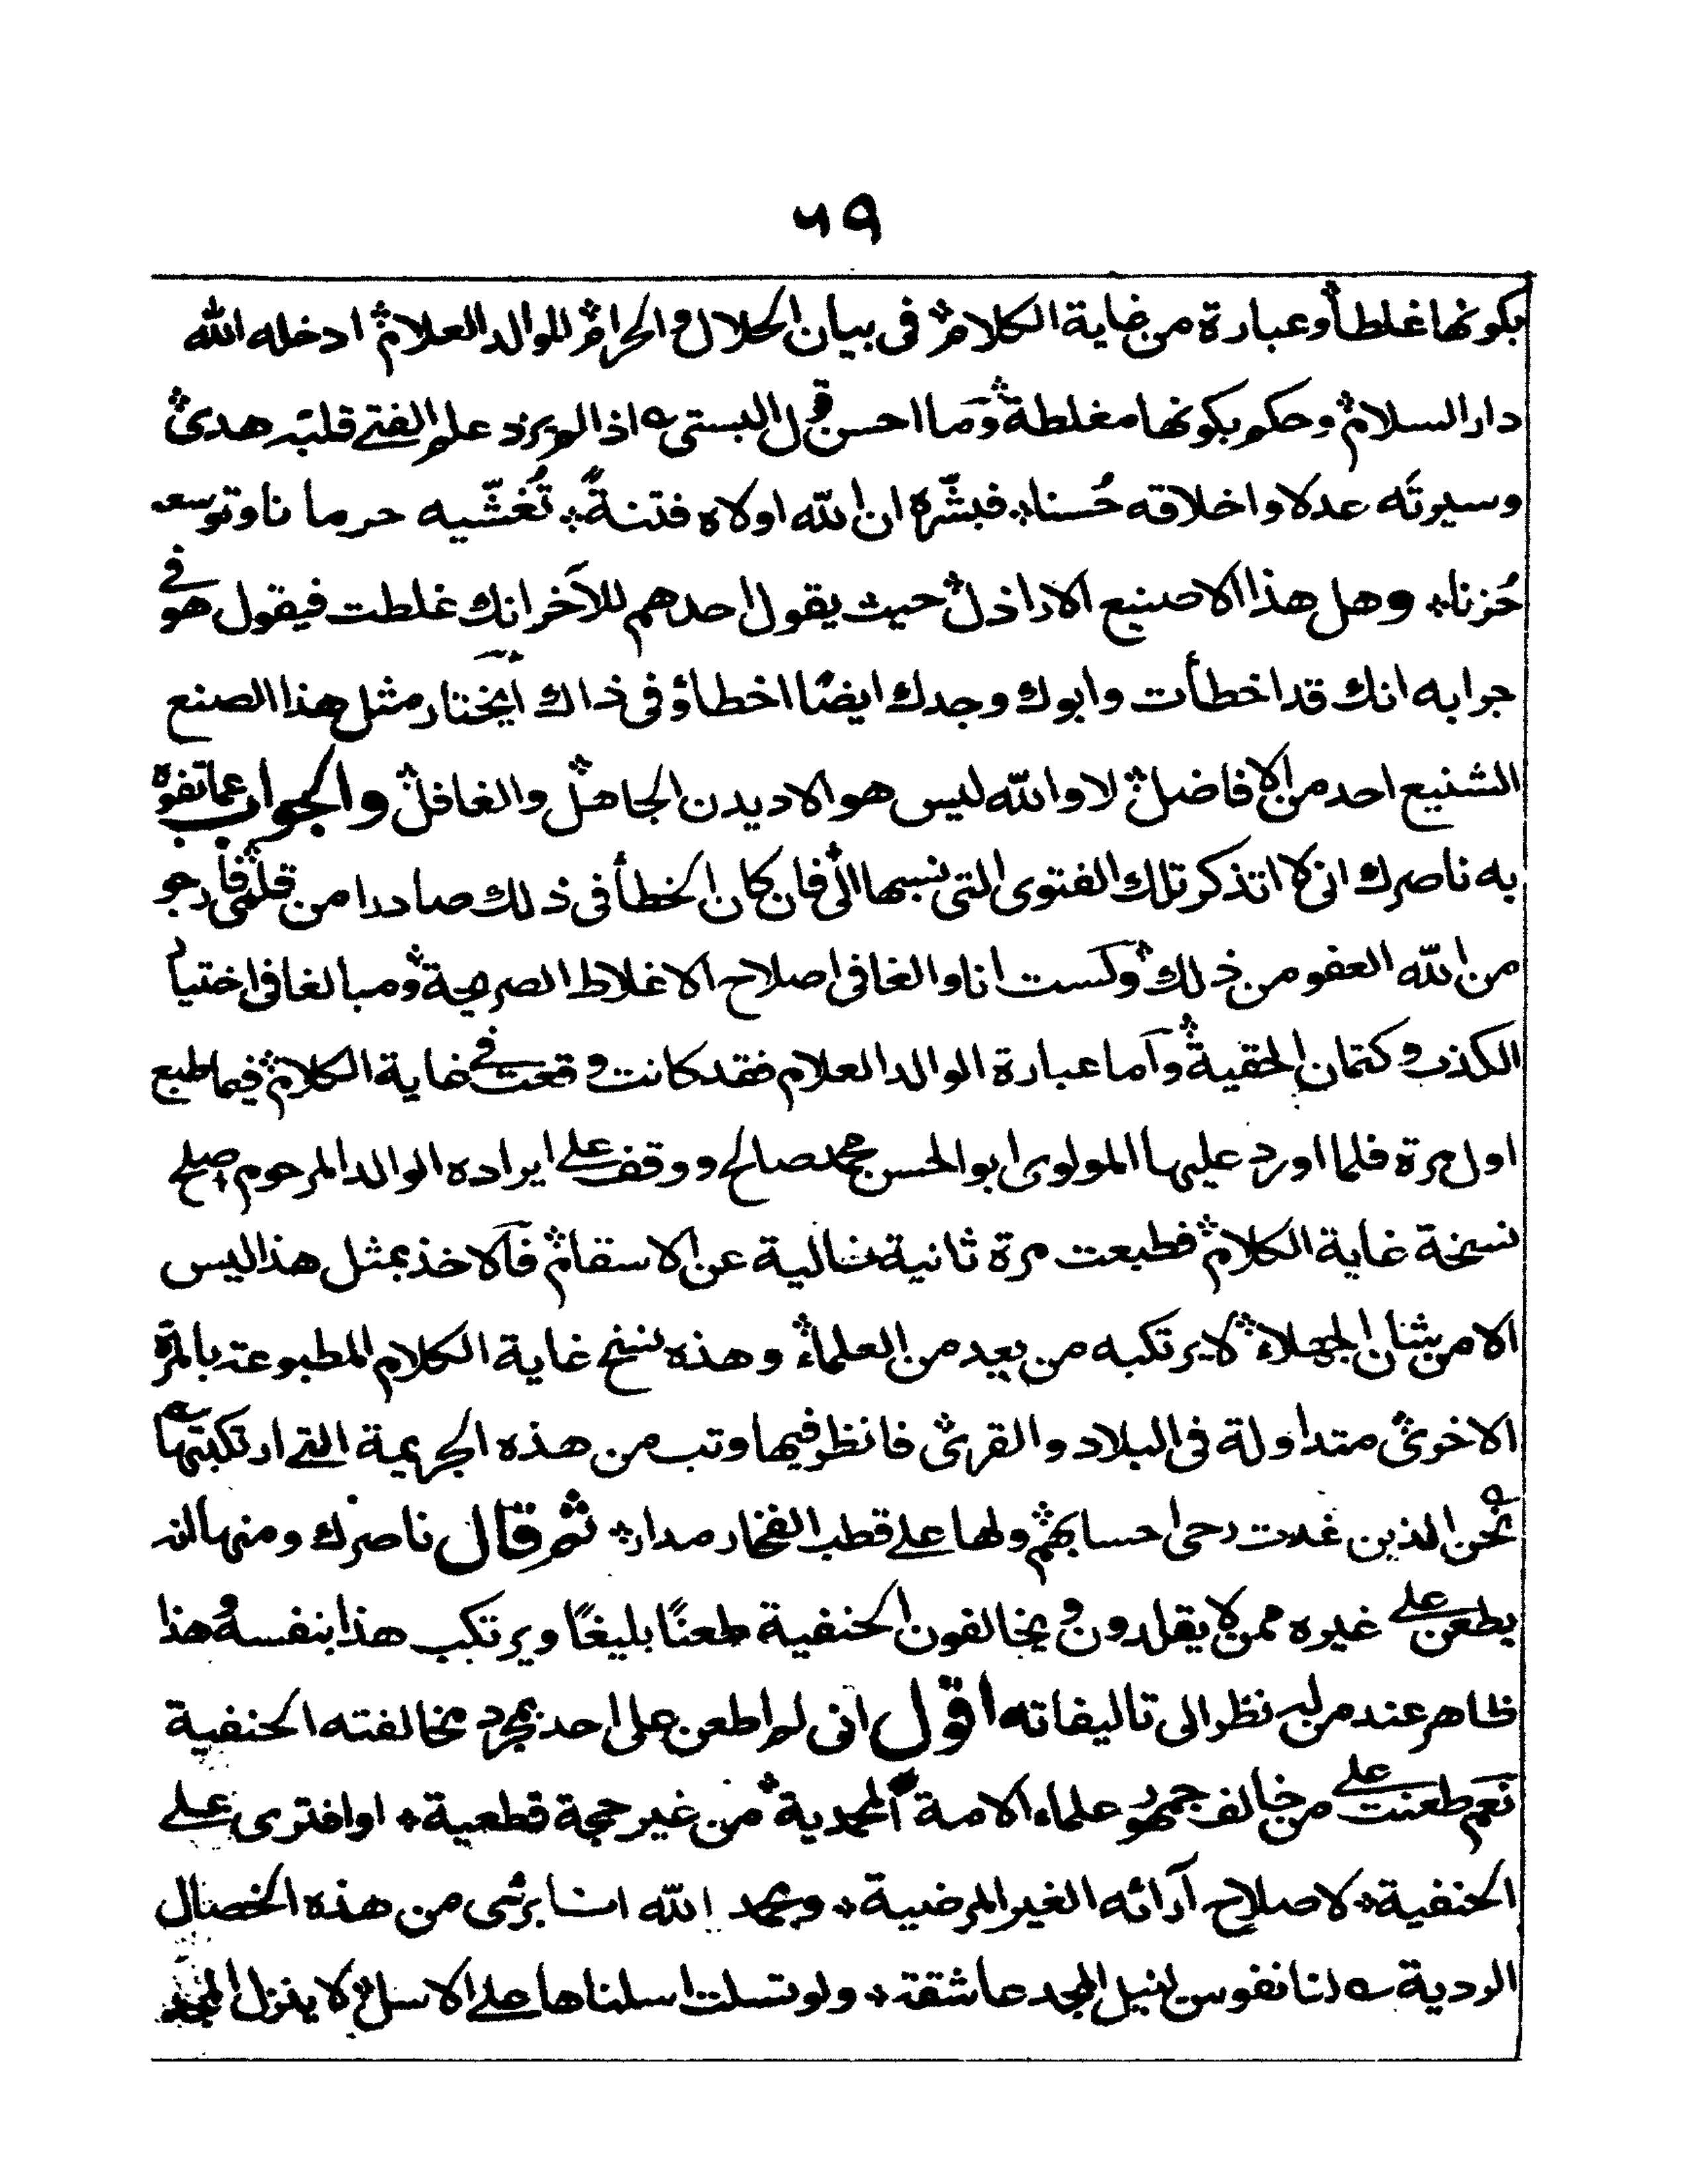 ٦٩
بكونها غلطا وعبارة من غاية الكلام فى بيان الحلال والحرام للوالد العلام ادخله الله
دار السلام وحكم بكونها مغلطة وما احسن قول البستى اذا لم يزد علم الفتے قلبَه هدىً
وسيرتَه عدلا واخلاقه حُسنا فبشّره ان الله اولاه فتنةً تُغشّيه حرمانا وتوسعه
حُزنا وهل هذا الا صنيع الاراذل حيث يقول احدهم للآخر انك غلطت فيقول هو فے
جوابه انك قد اخطأت وابوك وجدك ايضًا اخطاؤ فى ذاك أيختار مثل هذا الصنع
الشنيع احد من الافاضل لا والله ليس هو الا ديدن الجاهل والغافل والجواب عما تفوه
به ناصرك انى لا اتذكر تلك الفتوى التى نسبها الىّ فان كان الخطأ فى ذلك صادرا من قلمى فارجو
من الله العفو من ذلك ولست انا والغا فى اصلاح الاغلاط الصريحة ومبالغا فى اختيار
الكذب وكتمان الحقية وآما عبارة الوالد العلام فقد كانت وقعت فے غاية الكلام فيما طبع
اول مرة فلما اورد عليها المولوى ابو الحسن محمد صالح ووقف علے ايراده الوالد المرحوم اصلح
نسخة غاية الكلام فطبعت مرة ثانية خالية عن الاسقام فآلاخذ بمثل هذا ليس
الا من شان الجهلاء لا يرتكبه من يعد من العلماء وهذه نسخ غاية الكلام المطبوعة بالمرة
الاخرىٰ متداولة فى البلاد والقرىٰ فانظر فيها وتب من هذه الجريمة التے ارتكبتها
نحن الذين غدت رحى احسابهم ولها علے قطب الفخار مدار ثم قال ناصرك ومنها انه
يطعن علے غيره ممن لا يقلدون ويخالفون الحنفية طعنًا بليغًا ويرتكب هذا بنفسه وهذا
ظاهر عند من له نظر الى تاليفاته اقول انى لم اطعن على احد بمجرد مخالفته الحنفية
نعم طعنت علے من خالف جمهور علماء الامة المحمدية من غير حجة قطعية او افترى علے
الحنفية لاصلاح آرائه الغير المرضية وبحمد الله انا برئى من هذه الخصال
الردية لنا نفوس لنيل المجد عاشقة ولو تسلت اسلناها علے الاسل لا ينزل المجد